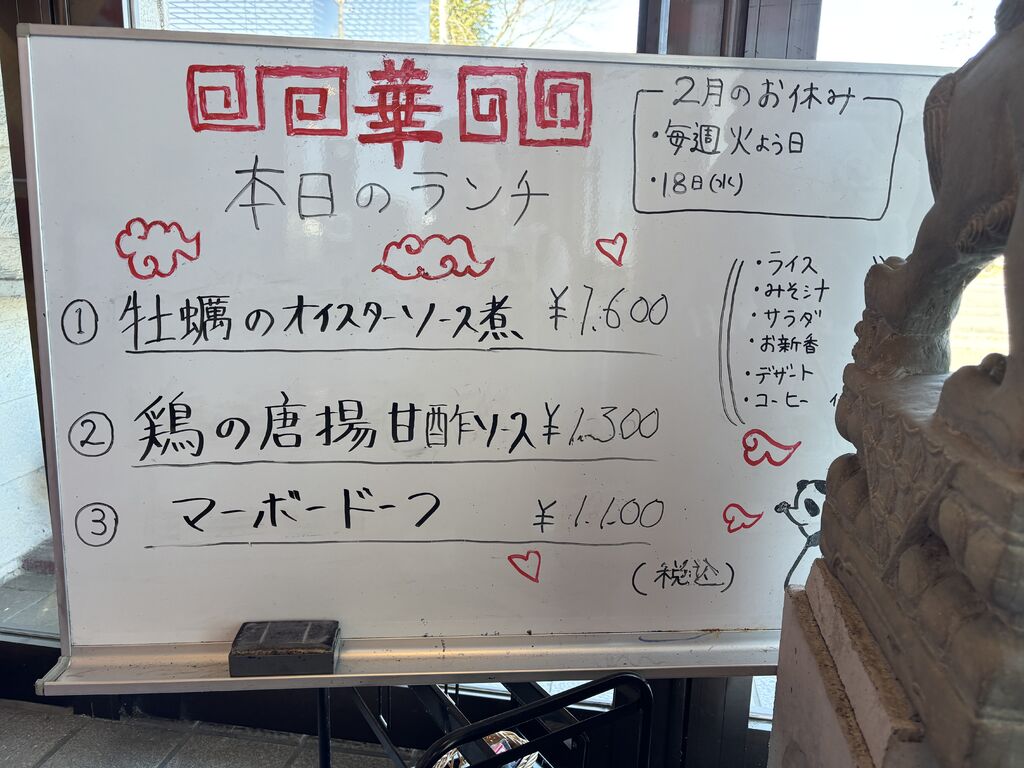 華
本日のランチ
① 牡蠣のオイスターソース煮 ¥1.600
② 鶏の唐揚甘酢ソース ¥1.300
③ マーボードーフ ¥1.100
(税込)
2月のお休み
・毎週火よう日
・18日(水)
・ライス
・みそ汁
・サラダ
・お新香
・デザート
・コーヒー